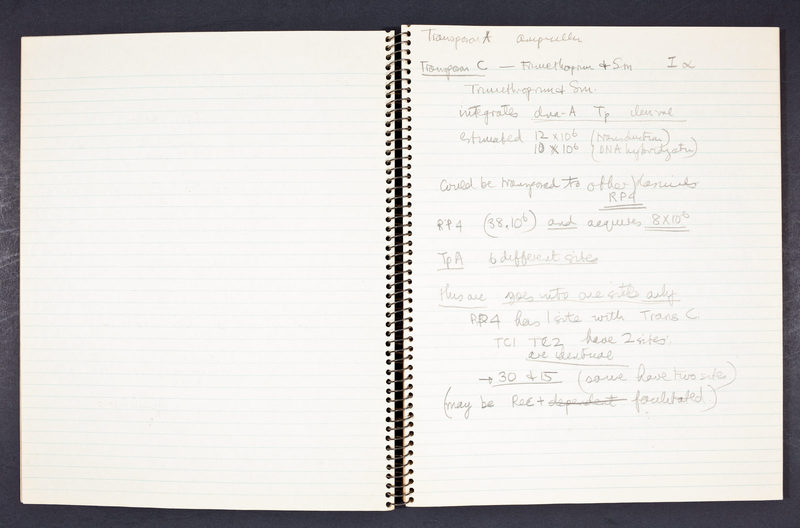 Transposon A ampicillin
Transposon C — Trimethoprim & Sm I α
Trimethoprim & Sm.
integrates dna-A Tp derive
estimated 12 x10⁶ (transduction)
10 x10⁶ (DNA hybridization)
could be transposed to other plasmids
RP4
RP4 (38.10⁶) and acquires 8x10⁶
TpA 6 different sites
this one goes into one site only
RP4 has 1 site with Trans C.
TC1 TC2 have 2 sites.
are identical
→ 30 & 15 (some have two sites)
(may be Rec + dependent facilitated)